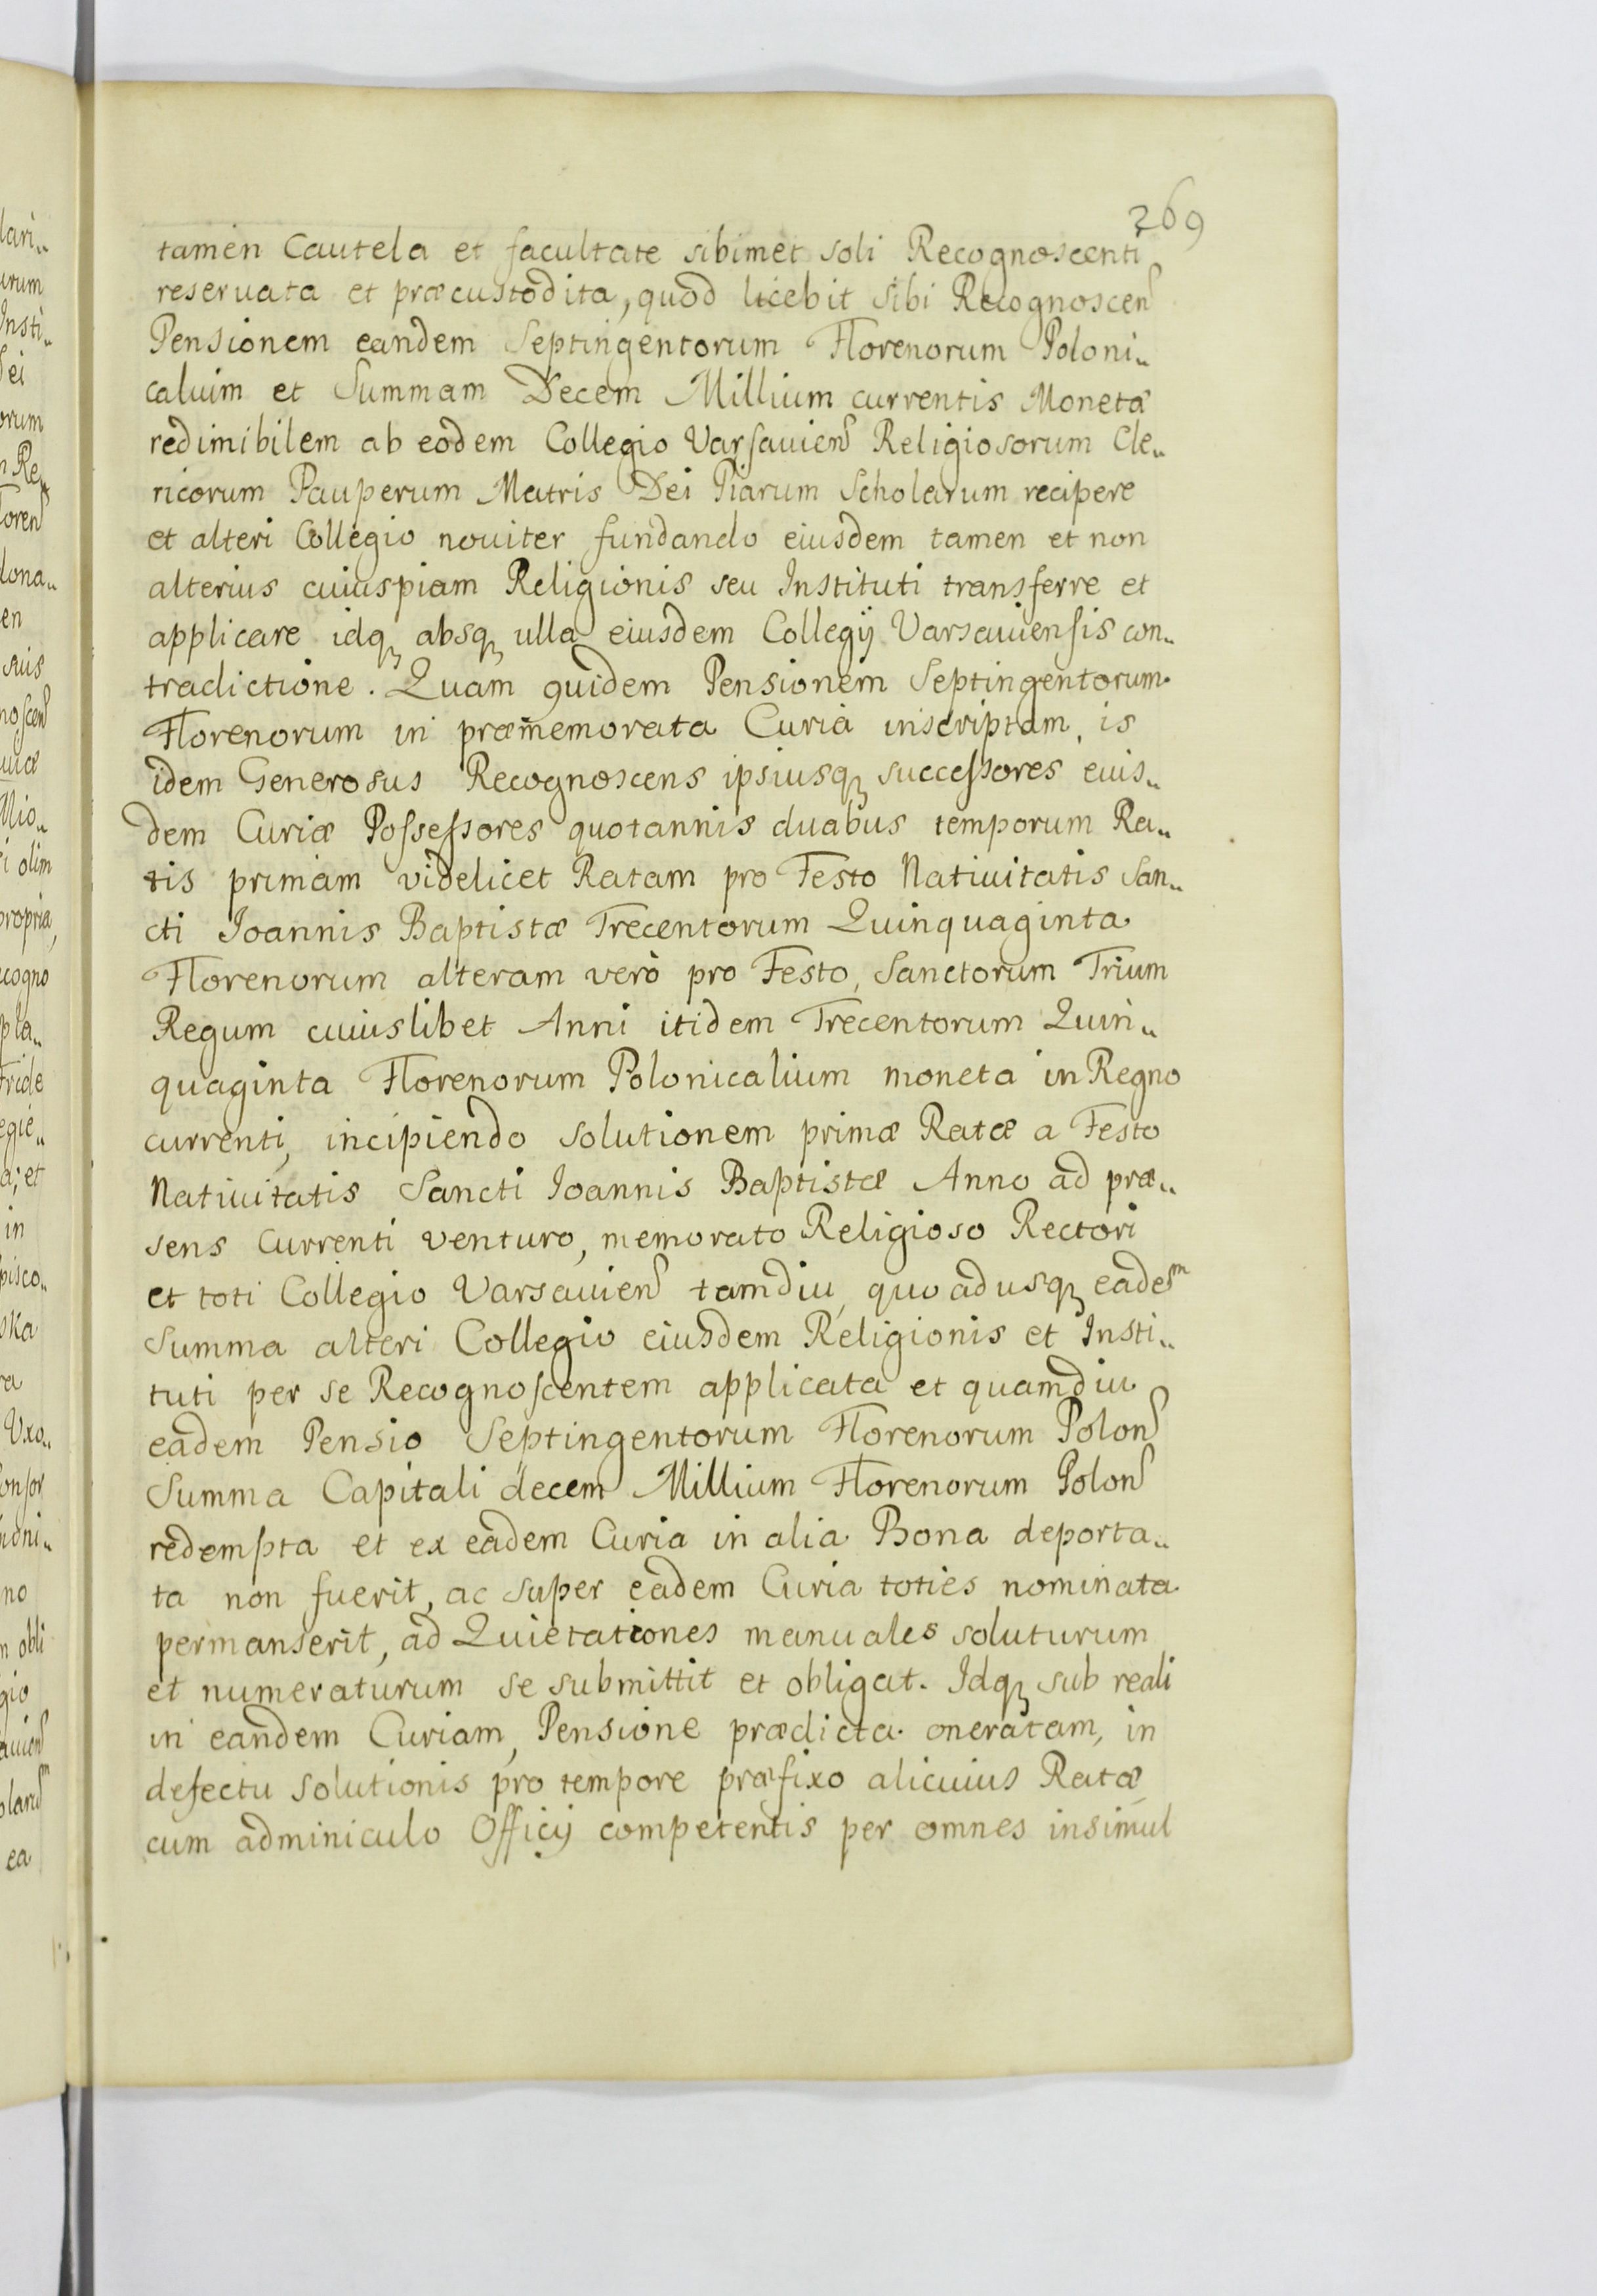 269
tamen Cautela et facultate sibimet soli Recognoscenti
reseruata et præcustodita, quod licebit sibi Recognoscen
Pensionem eandem Septingentorum Florenorum Poloni„
caluim et Summam Decem Millium currentis Monetæ
redimibilem ab eodem Collegio Varsauien Religiosorum Cle„
ricorum Pauperum Matris Dei Piarum Scholarum recipere
et alteri Collegio nouiter fundando eiusdem tamen et non
alterius cuiuspiam Religionis seu Instituti transferre et
applicare idq absq ulla eiusdem Collegij Varsauiensis con„
tradictione. Quam quidem Pensionem Septingentorum
Florenorum in præmemorata Curia inscriptam, is
idem Generosus Recognoscens ipsiusq successores eius„
dem Curiæ Possessores quotannis duabus temporum Ra„
tis primam videlicet Ratam pro Festo Natiuitatis San„
cti Joannis Baptistæ Trecentorum Quinquaginta
Florenorum alteram verò pro Festo, Sanctorum Trium
Regum cuiuslibet Anni itidem Trecentorum Quin„
quaginta Florenorum Polonicalium moneta in Regno
currenti, incipiendo solutionem primæ Ratæ a Festo
Natiuitatis Sancti Joannis Baptistæ Anno ad præ„
sens Currenti venturo, memorato Religioso Rectori
et toti Collegio Varsauien tamdiu, quo adusq eadem
Summa alteri Collegio eiusdem Religionis et Insti„
tuti per se Recognoscentem applicata et quamdiu
eadem Pensio Septingentorum Florenorum Polon
Summa Capitali decem Millium Florenorum Polon
redempta et ex eadem Curia in alia Bona deporta„
ta non fuerit, ac super eadem Curia toties nominata
permanserit, ad Quietationes manuales soluturum
et numeraturum se submittit et obligat. Idq sub reali
in eandem Curiam, Pensione prædicta oneratam, in
defectu solutionis pro tempore præfixo alicuius Ratæ
cum adminiculo Officij competentis per omnes insimul